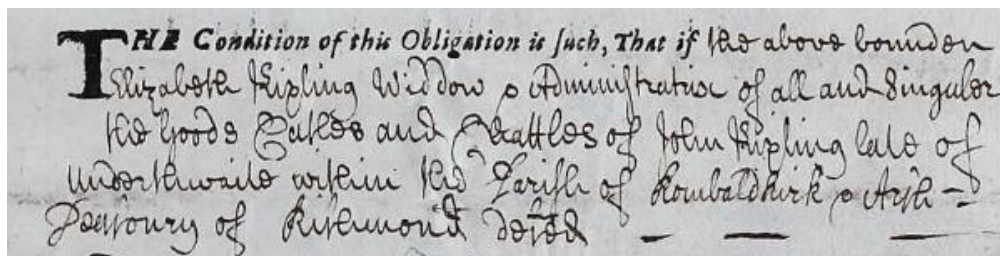 THE Condition of this Obligation is such, That if the above bounden
Elizabeth Kipling Widdow & Administratrix of all and Singuler
the Goods Catles and Chattles of John Kipling late of
Underthwaite within the Parish of Rombaldkirk & Arch-
Deaconry of Richmond deced